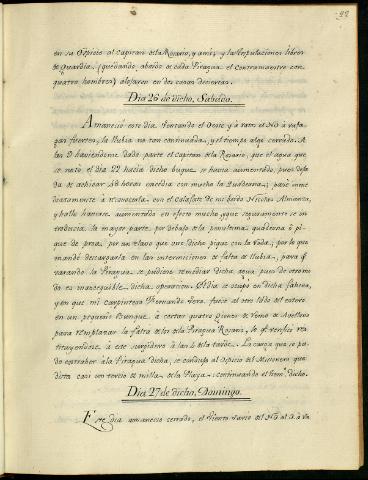 98
en su Ospicio al Capitan de la Rosario, y a mi; y las tripulaciones libres
de Guardia, (quedando, abordo de cada Piragua el Contramaestre con
quatro hombres) alojasen en dos casas decentes.
Dia 26 de dicho, Sabado.
Amaneció este dia Ventando el Oeste y a ratos el NO à rafa-
gas fuertes, la llubia no tan continuada, y el tiempo algo cerrado. A
las 9 haviendome dado parte el Capitan de la Rosario, que el agua que
se noto el dia 22 hacia dicho buque se havia aumentado, pues
da de achicar 48 horas excedia con mucho la Quaderna; pasé inme
diatamente à reconocerla con el Calafate de mi bordo Nicolas Almonza,
y halle havarse aumentado en efecto mucho, y que seguramente se in
troducia la mayor parte por debajo de la penultima quaderna ò pi
que de proa, por un clavo que me dicho pique con la ; por lo que
mandé descargarla en las intermisiones de falta de llubia, para q.
varando la Piragua se pudiese remediar dicha agua, pues de otro mo
do es inasequible dicha operacion. El dia se ocupó en dicha fahena,
y en que mi Carpintero Fernando Vera fuese al otro lado del estero
en un pequeño Bongue à cortar quatro Pernos de Remo de Avellano
para remplazar la falta de los de la Piragua Rosario, lo q.e verificó res
tituyendose à este surgidero à las 4 de la tarde. La carga que se pu
do extraher à la Piragua dicha, se condujo al Ospicio del Misionero que
dista casi un tercio de milla de la Playa: continuando el tiem.po dicho.
Dia 27 de dicho, Domingo.
Este dia amanecio cerrado, el Viento vario del NO al S. à ra